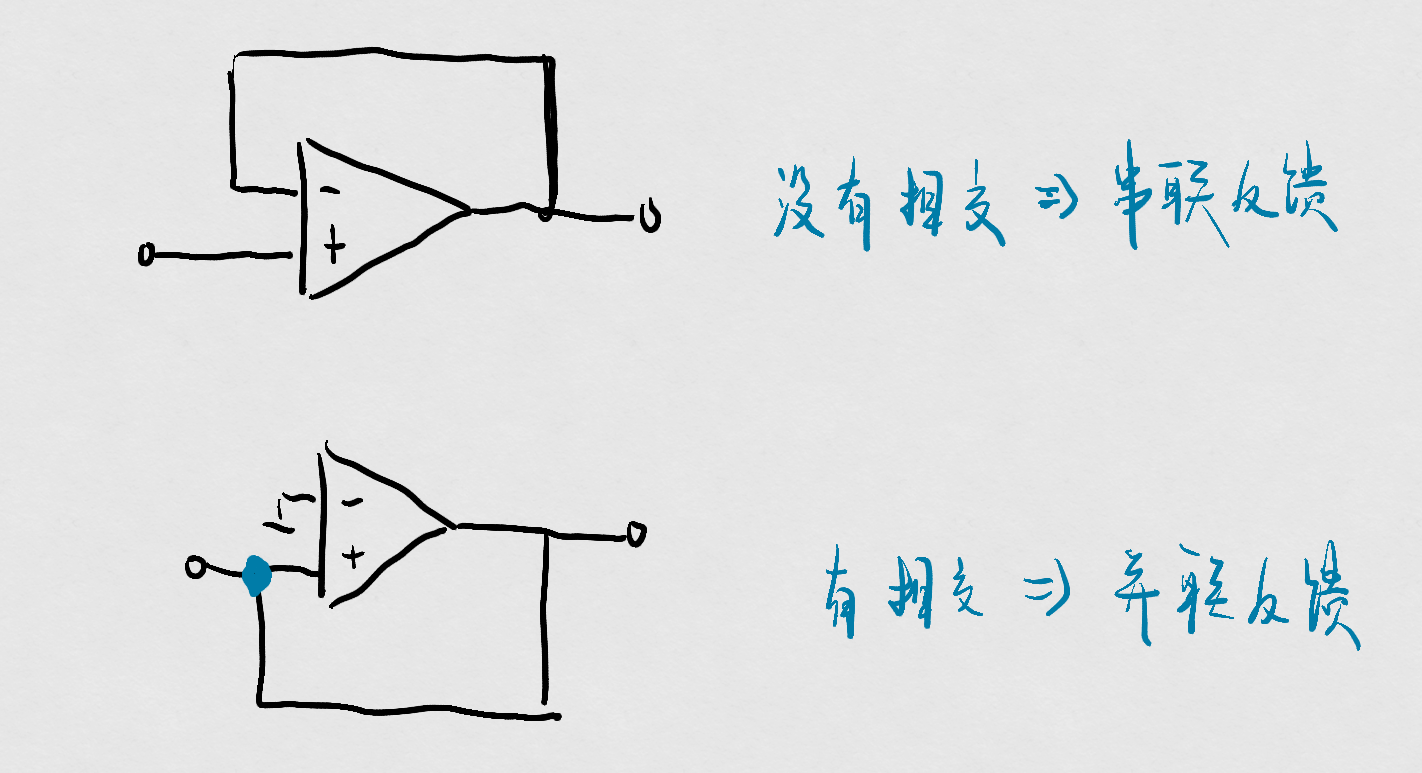 -
+
没有相交 => 串联反馈
-
+
有相交 => 并联反馈